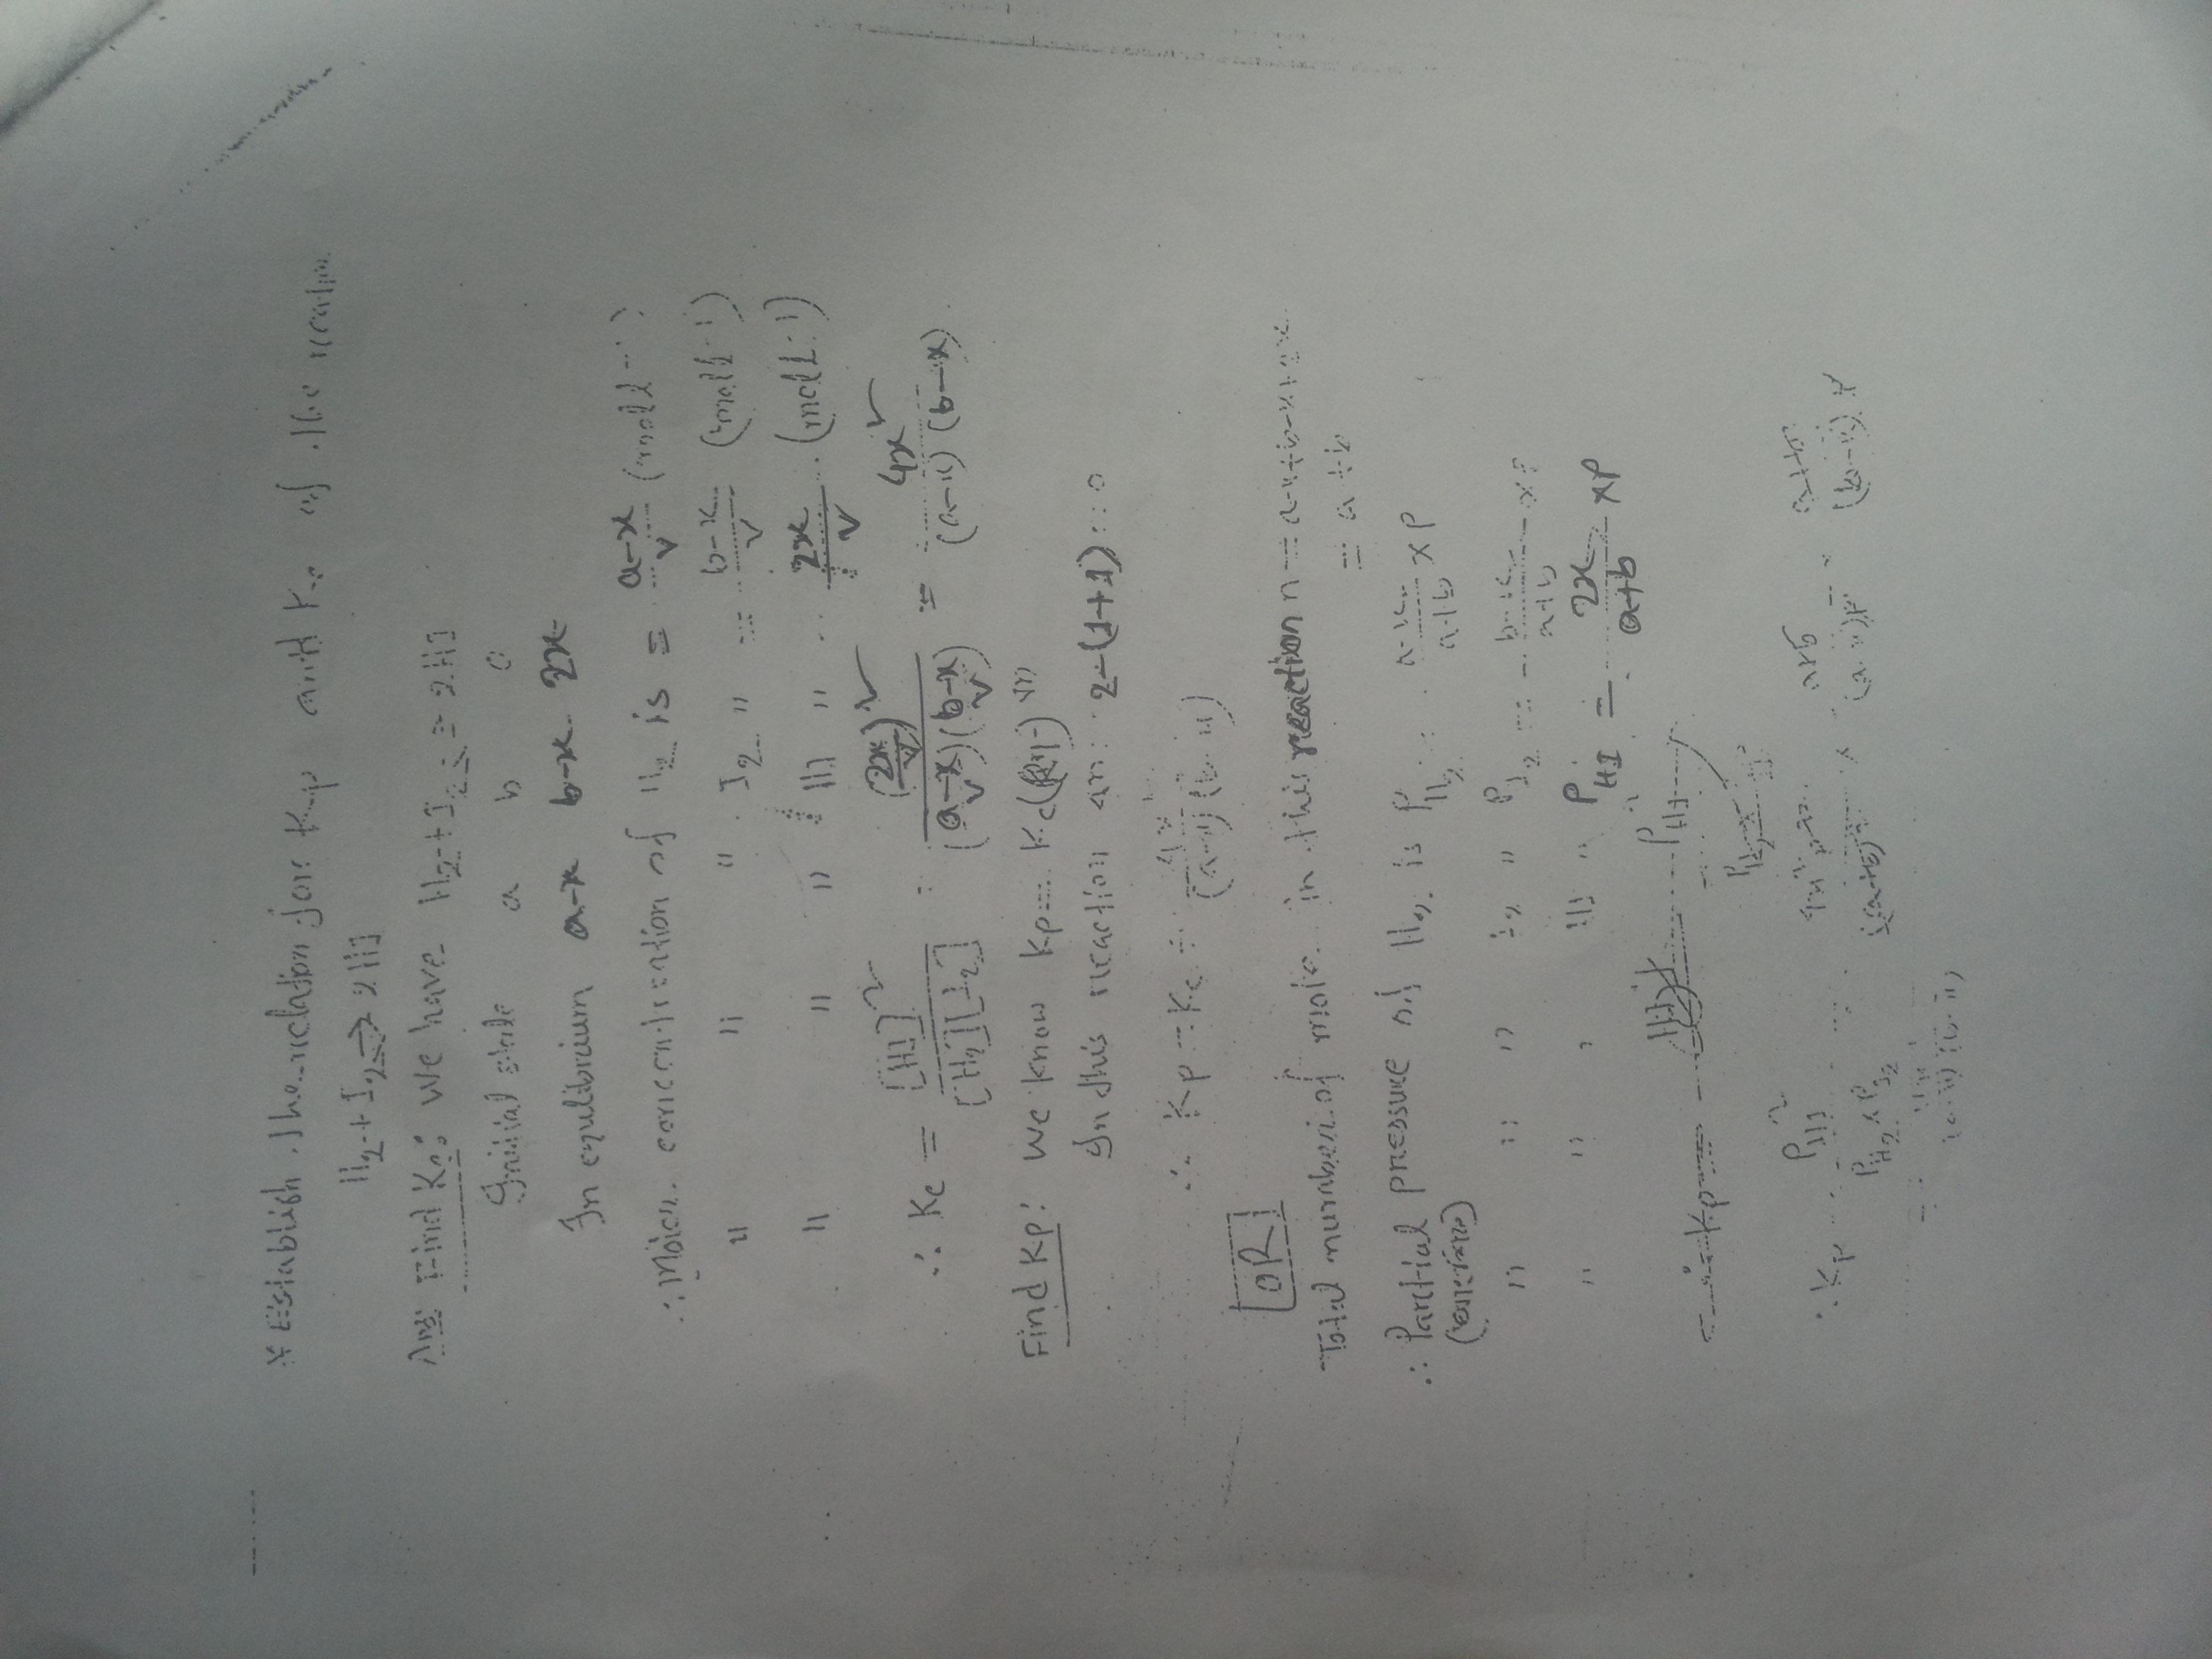 * Establish the relation for Kp and Kc of the reaction
H₂ + I₂ ⇌ 2HI
Ans: Find Kc: We have H₂ + I₂ ⇌ 2HI
Initial state a b 0
In equlibrium a-x b-x 2x
∴ Molar concentration of H₂ is = a-x/V (mol L⁻¹)
" " " I₂ " = b-x/V (mol L⁻¹)
" " " HI " = 2x/V (mol L⁻¹)
∴ Kc = [HI]²/[H₂][I₂] = (2x/V)²/(a-x/V)(b-x/V) = 4x²/(a-x)(b-x)
Find Kp: We know Kp = Kc(RT)^Δn
In this reaction Δn = 2-(1+1) = 0
∴ Kp = Kc = 4x²/(a-x)(b-x)
OR
Total number of mole in this reaction n = a-x+b-x+2x
= a+b
∴ Partial pressure of H₂ is P_H₂ = a-x/a+b × P
" " " I₂ " P_I₂ = b-x/a+b × P
" " " HI " P_HI = 2x/a+b × P
∴ Kp = P_HI²/P_H₂ × P_I₂ = 4x²P²/(a+b)² × a+b/(a-x)P × a+b/(b-x)P
= 4x²/(a-x)(b-x)